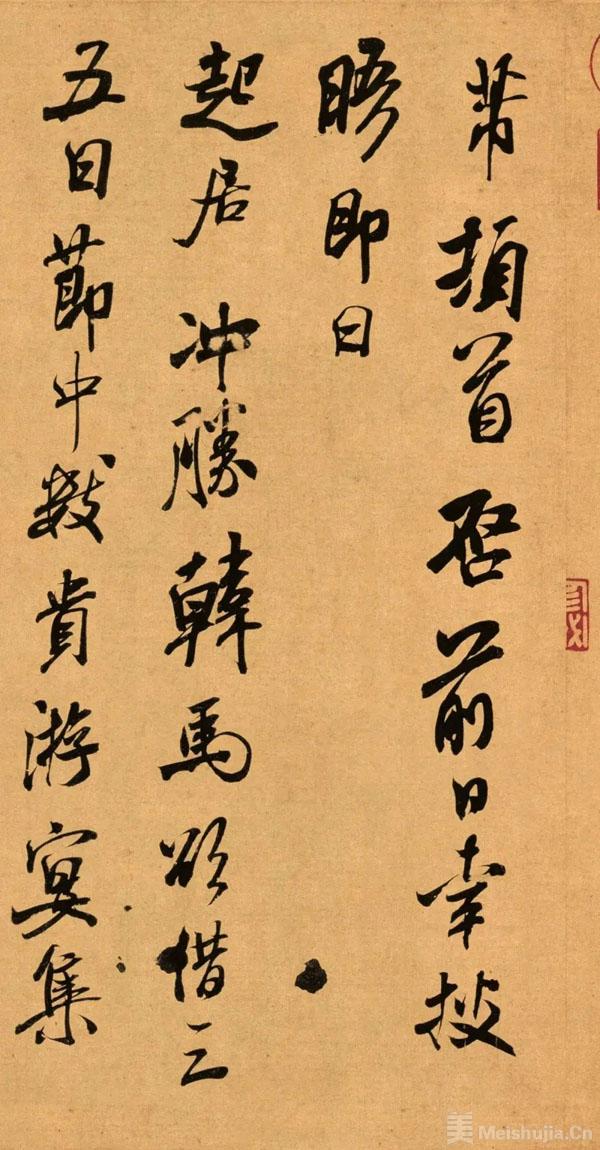 芾頓首啓前日幸披
晤即日
起居冲勝韓馬欲借三
五日節中數貴游宴集
美 Meishujia.Cn